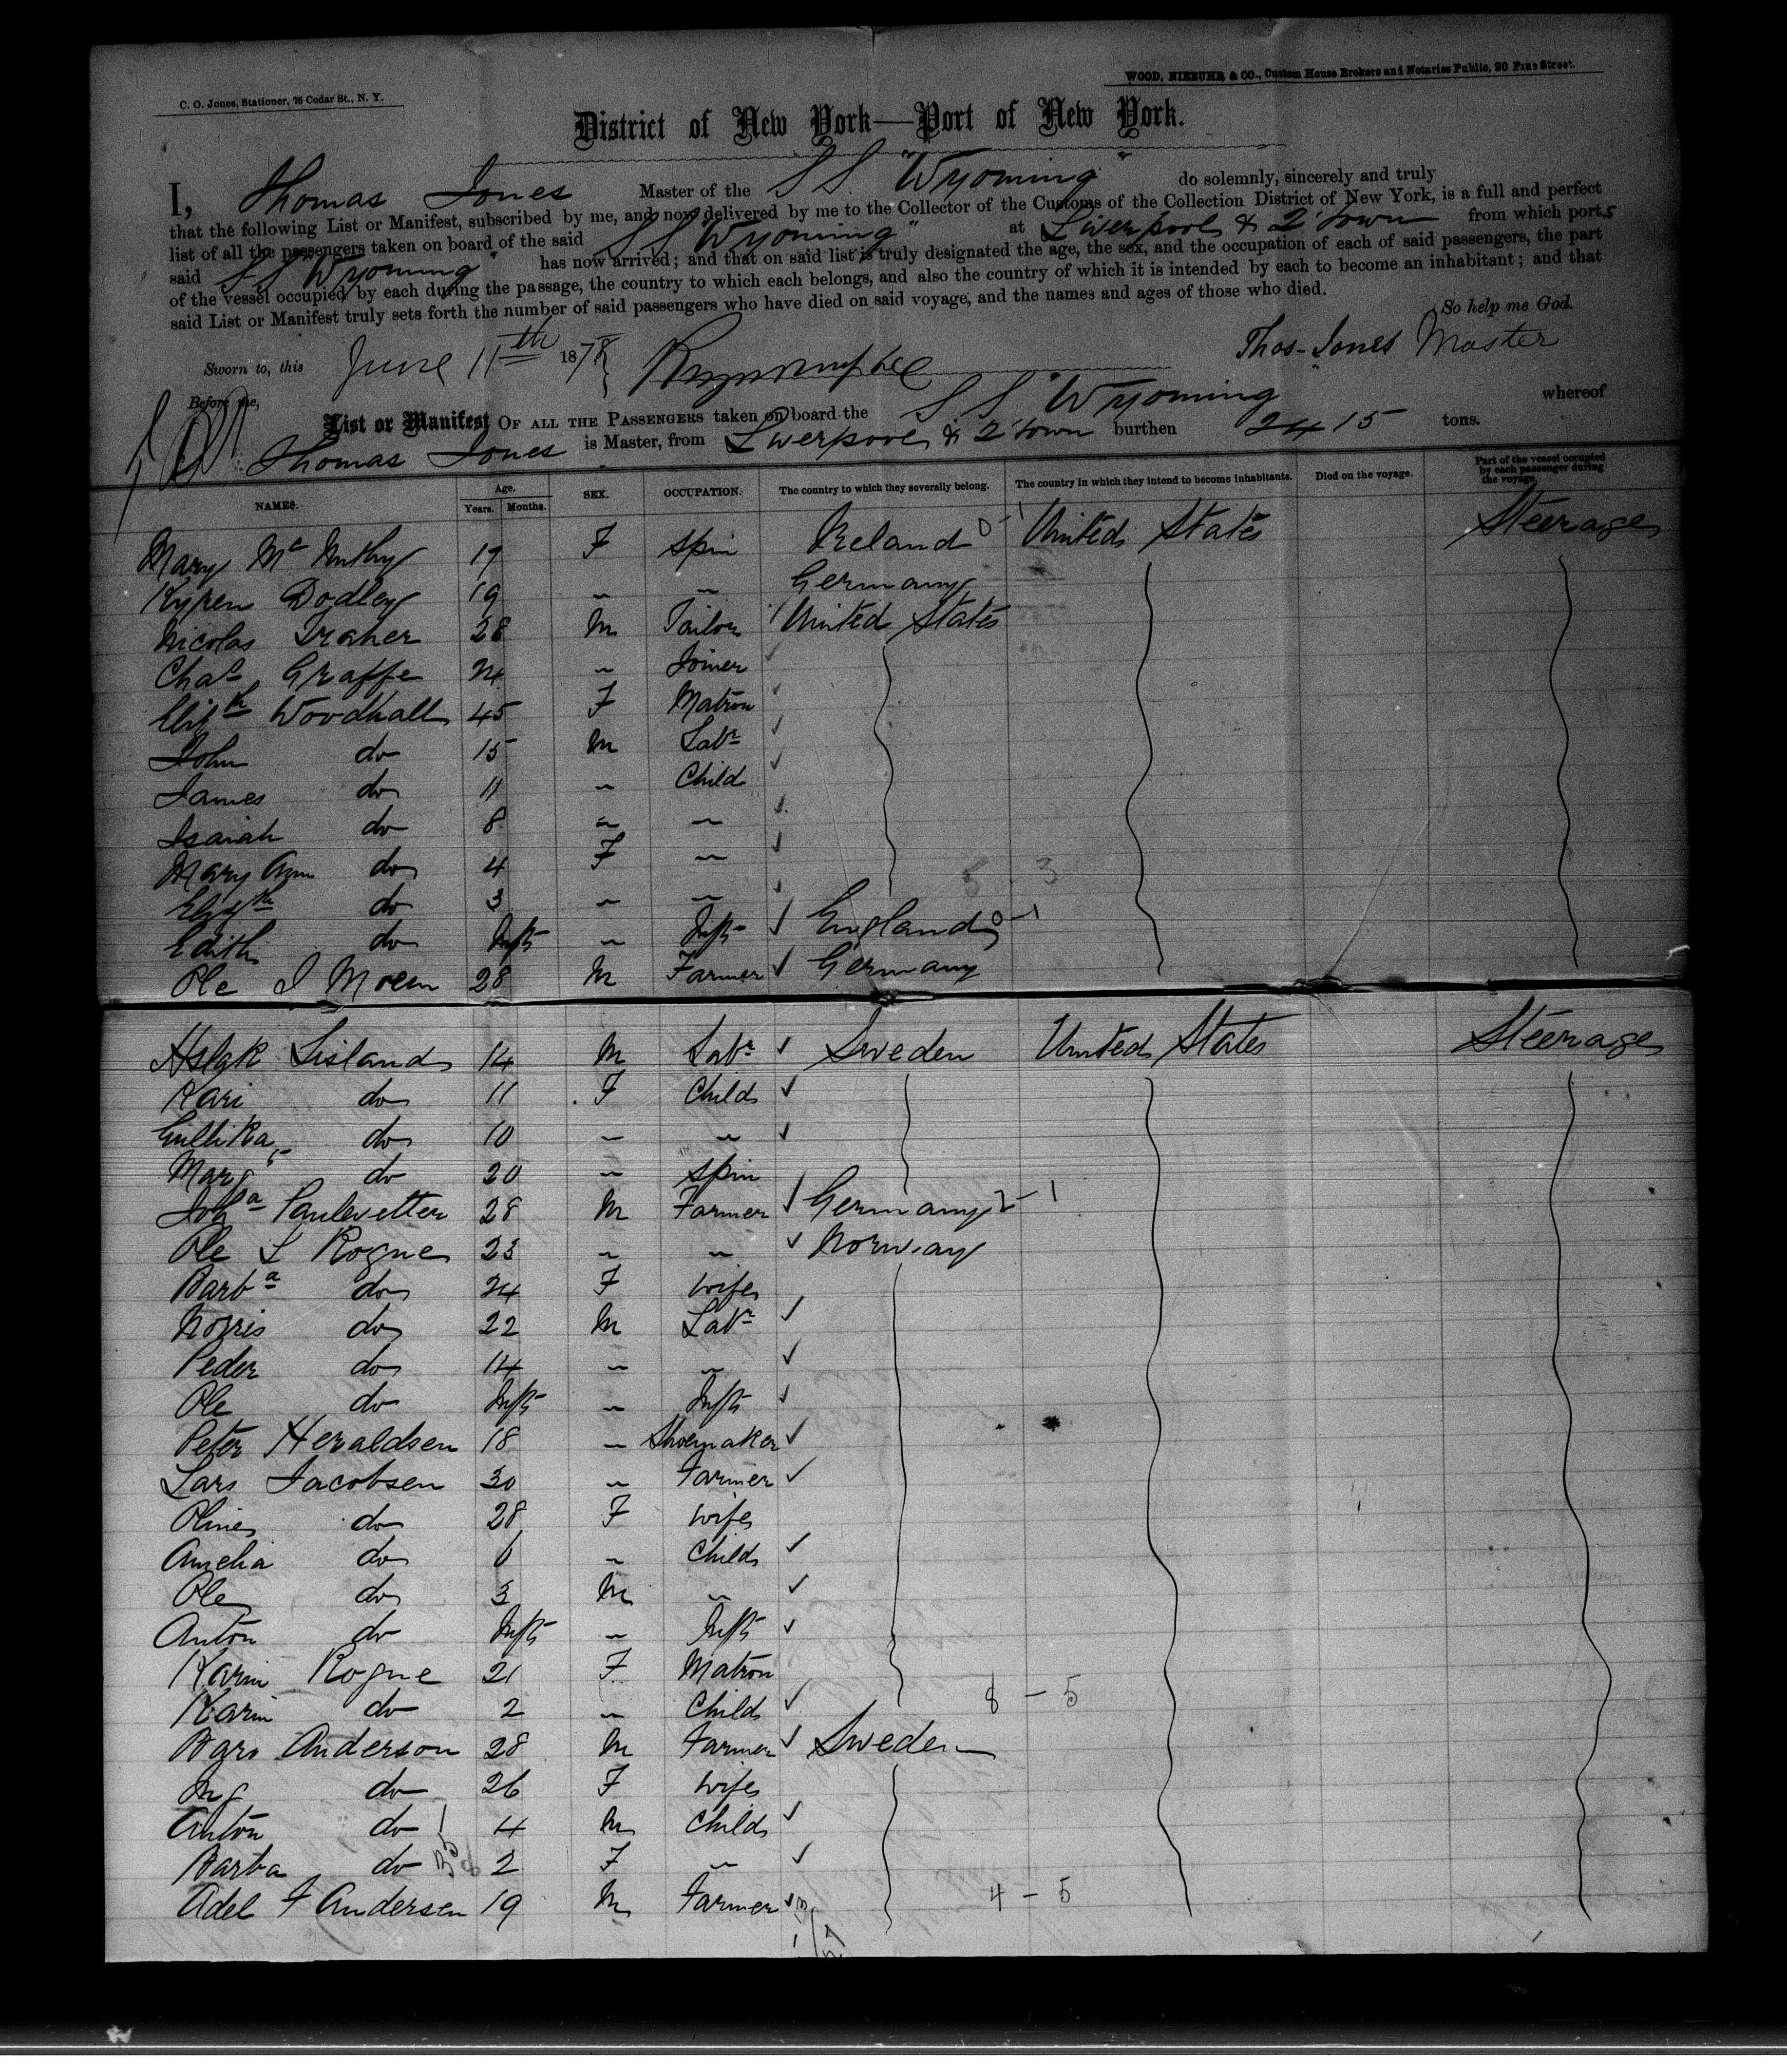 C. O. Jones, Stationer, 76 Cedar St., N. Y.
WOOD, NIEBUHR, & CO., Custom House Brokers and Notaries Public, 20 Pine Street.
District of New York—Port of New York.
I, Thomas Jones Master of the S S. "Wyoming" do solemnly, sincerely and truly
that the following List or Manifest, subscribed by me, and now delivered by me to the Collector of the Customs of the Collection District of New York, is a full and perfect
list of all the passengers taken on board of the said S S "Wyoming" at Liverpool & Q'town from which ports
said S S "Wyoming" has now arrived; and that on said list is truly designated the age, the sex, and the occupation of each of said passengers, the part
of the vessel occupied by each during the passage, the country to which each belongs, and also the country of which it is intended by each to become an inhabitant; and that
said List or Manifest truly sets forth the number of said passengers who have died on said voyage, and the names and ages of those who died.
So help me God.
Sworn to, this June 11th 1878 Thos- Jones Master
Before me,
List or Manifest OF ALL THE PASSENGERS taken on board the S S "Wyoming" whereof
Thomas Jones is Master, from Liverpool & Q'town burthen 2415 tons.
NAMES. Age. Years. Months. SEX. OCCUPATION. The country to which they severally belong. The country in which they intend to become inhabitants. Died on the voyage. Part of the vessel occupied by each passenger during the voyage.
Mary Mc 19 F Spin Ireland 0-1 United States Steerage
Kyren Dodley 19 " " Germany
Nicolas Traher 28 M Tailor United States
Chas Graffe 24 " Joiner
Elizth Woodhall 45 F Matron
John do 15 M Labr
James do 11 " Child
Isaiah do 8 " "
Mary Ann do 4 F " 5 - 3
Elizth do 3 " "
Edith do Inft " Inft England 0-1
Ole I Moen 28 M Farmer Germany
Aslak Lisland 14 M Labr Sweden United States Steerage
Kari do 11 F Child
Gullika do 10 " "
Margt do 20 " Spin
Joha Paulevetter 28 M Farmer Germany 2-1
Ole L Rogne 23 " " Norway
Barba do 24 F Wife
Norris do 22 M Labr
Peder do 14 " "
Ole do Inft " Inft
Peter Heraldsen 18 " Shoemaker
Lars Jacobsen 30 " Farmer
Oline do 28 F Wife
Amelia do 6 " Child
Ole do 3 M "
Anton do Inft " Inft
Karin Rogne 21 F Matron
Karin do 2 " Child 8 - 5
Anderson 28 M Farmer Sweden
Ing do 26 F Wife
Anton do 4 M Child
Barba do 2 F "
Adel F Andersen 19 M Farmer 4 - 5